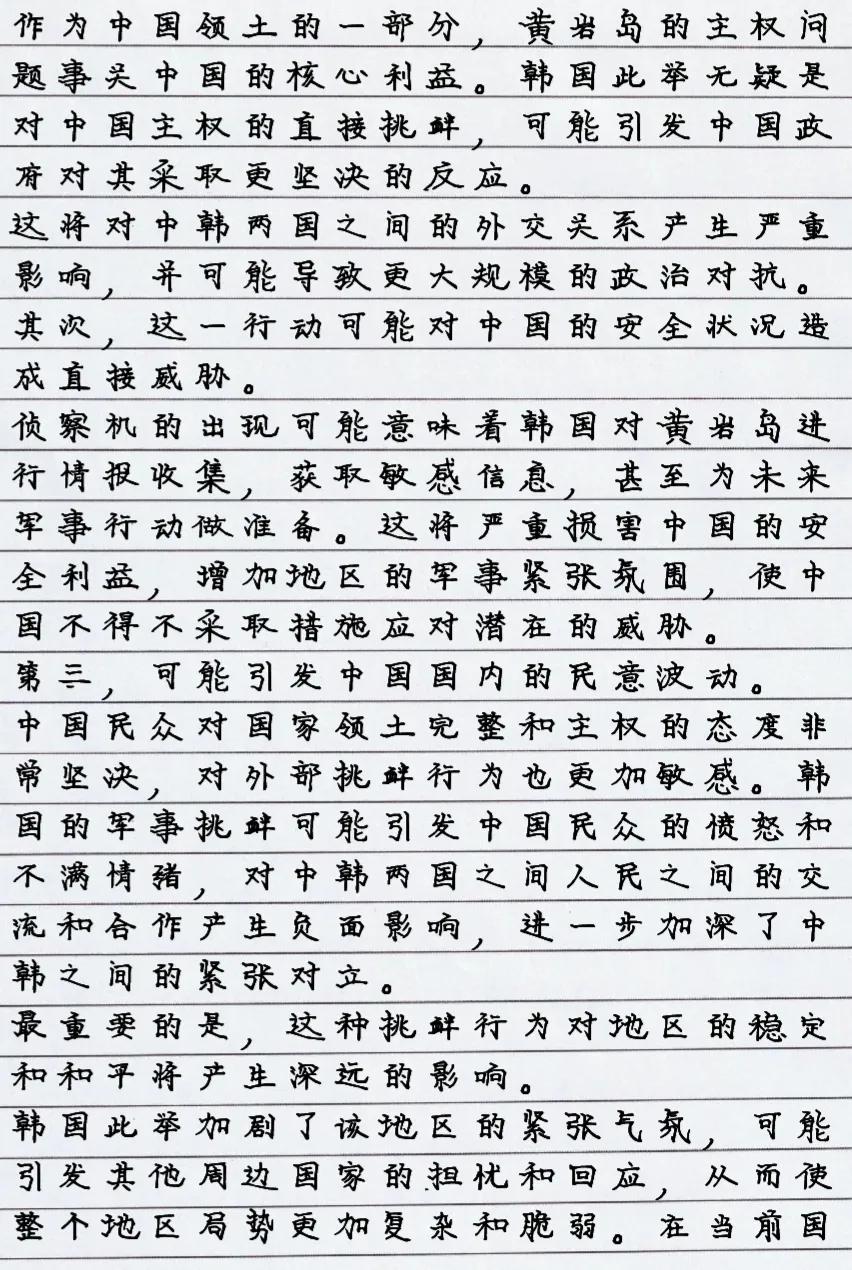 作为中国领土的一部分,黄岩岛的主权问
题事关中国的核心利益。韩国此举无疑是
对中国主权的直接挑衅,可能引发中国政
府对其采取更坚决的反应。
这将对中韩两国之间的外交关系产生严重
影响,并可能导致更大规模的政治对抗。
其次,这一行动可能对中国的安全状况造
成直接威胁。
侦察机的出现可能意味着韩国对黄岩岛进
行情报收集,获取敏感信息,甚至为未来
军事行动做准备。这将严重损害中国的安
全利益,增加地区的军事紧张氛围,使中
国不得不采取措施应对潜在的威胁。
第三,可能引发中国国内的民意波动。
中国民众对国家领土完整和主权的态度非
常坚决,对外部挑衅行为也更加敏感。韩
国的军事挑衅可能引发中国民众的愤怒和
不满情绪,对中韩两国之间人民之间的交
流和合作产生负面影响,进一步加深了中
韩之间的紧张对立。
最重要的是,这种挑衅行为对地区的稳定
和和平将产生深远的影响。
韩国此举加剧了该地区的紧张气氛,可能
引发其他周边国家的担忧和回应,从而使
整个地区局势更加复杂和脆弱。在当前国